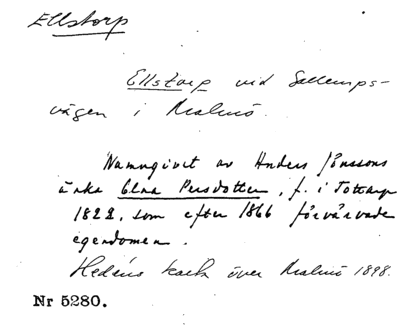 Ellstorp
Ellstorp vid Sallerups-
vägen i Malmö.
Namngivet av Anders Jönssons
änka Elna Persdotter, f. i Tottarp
1822, som efter 1866 förvärvade
egendomen.
Hedéns karta över Malmö 1898.
Nr 5280.